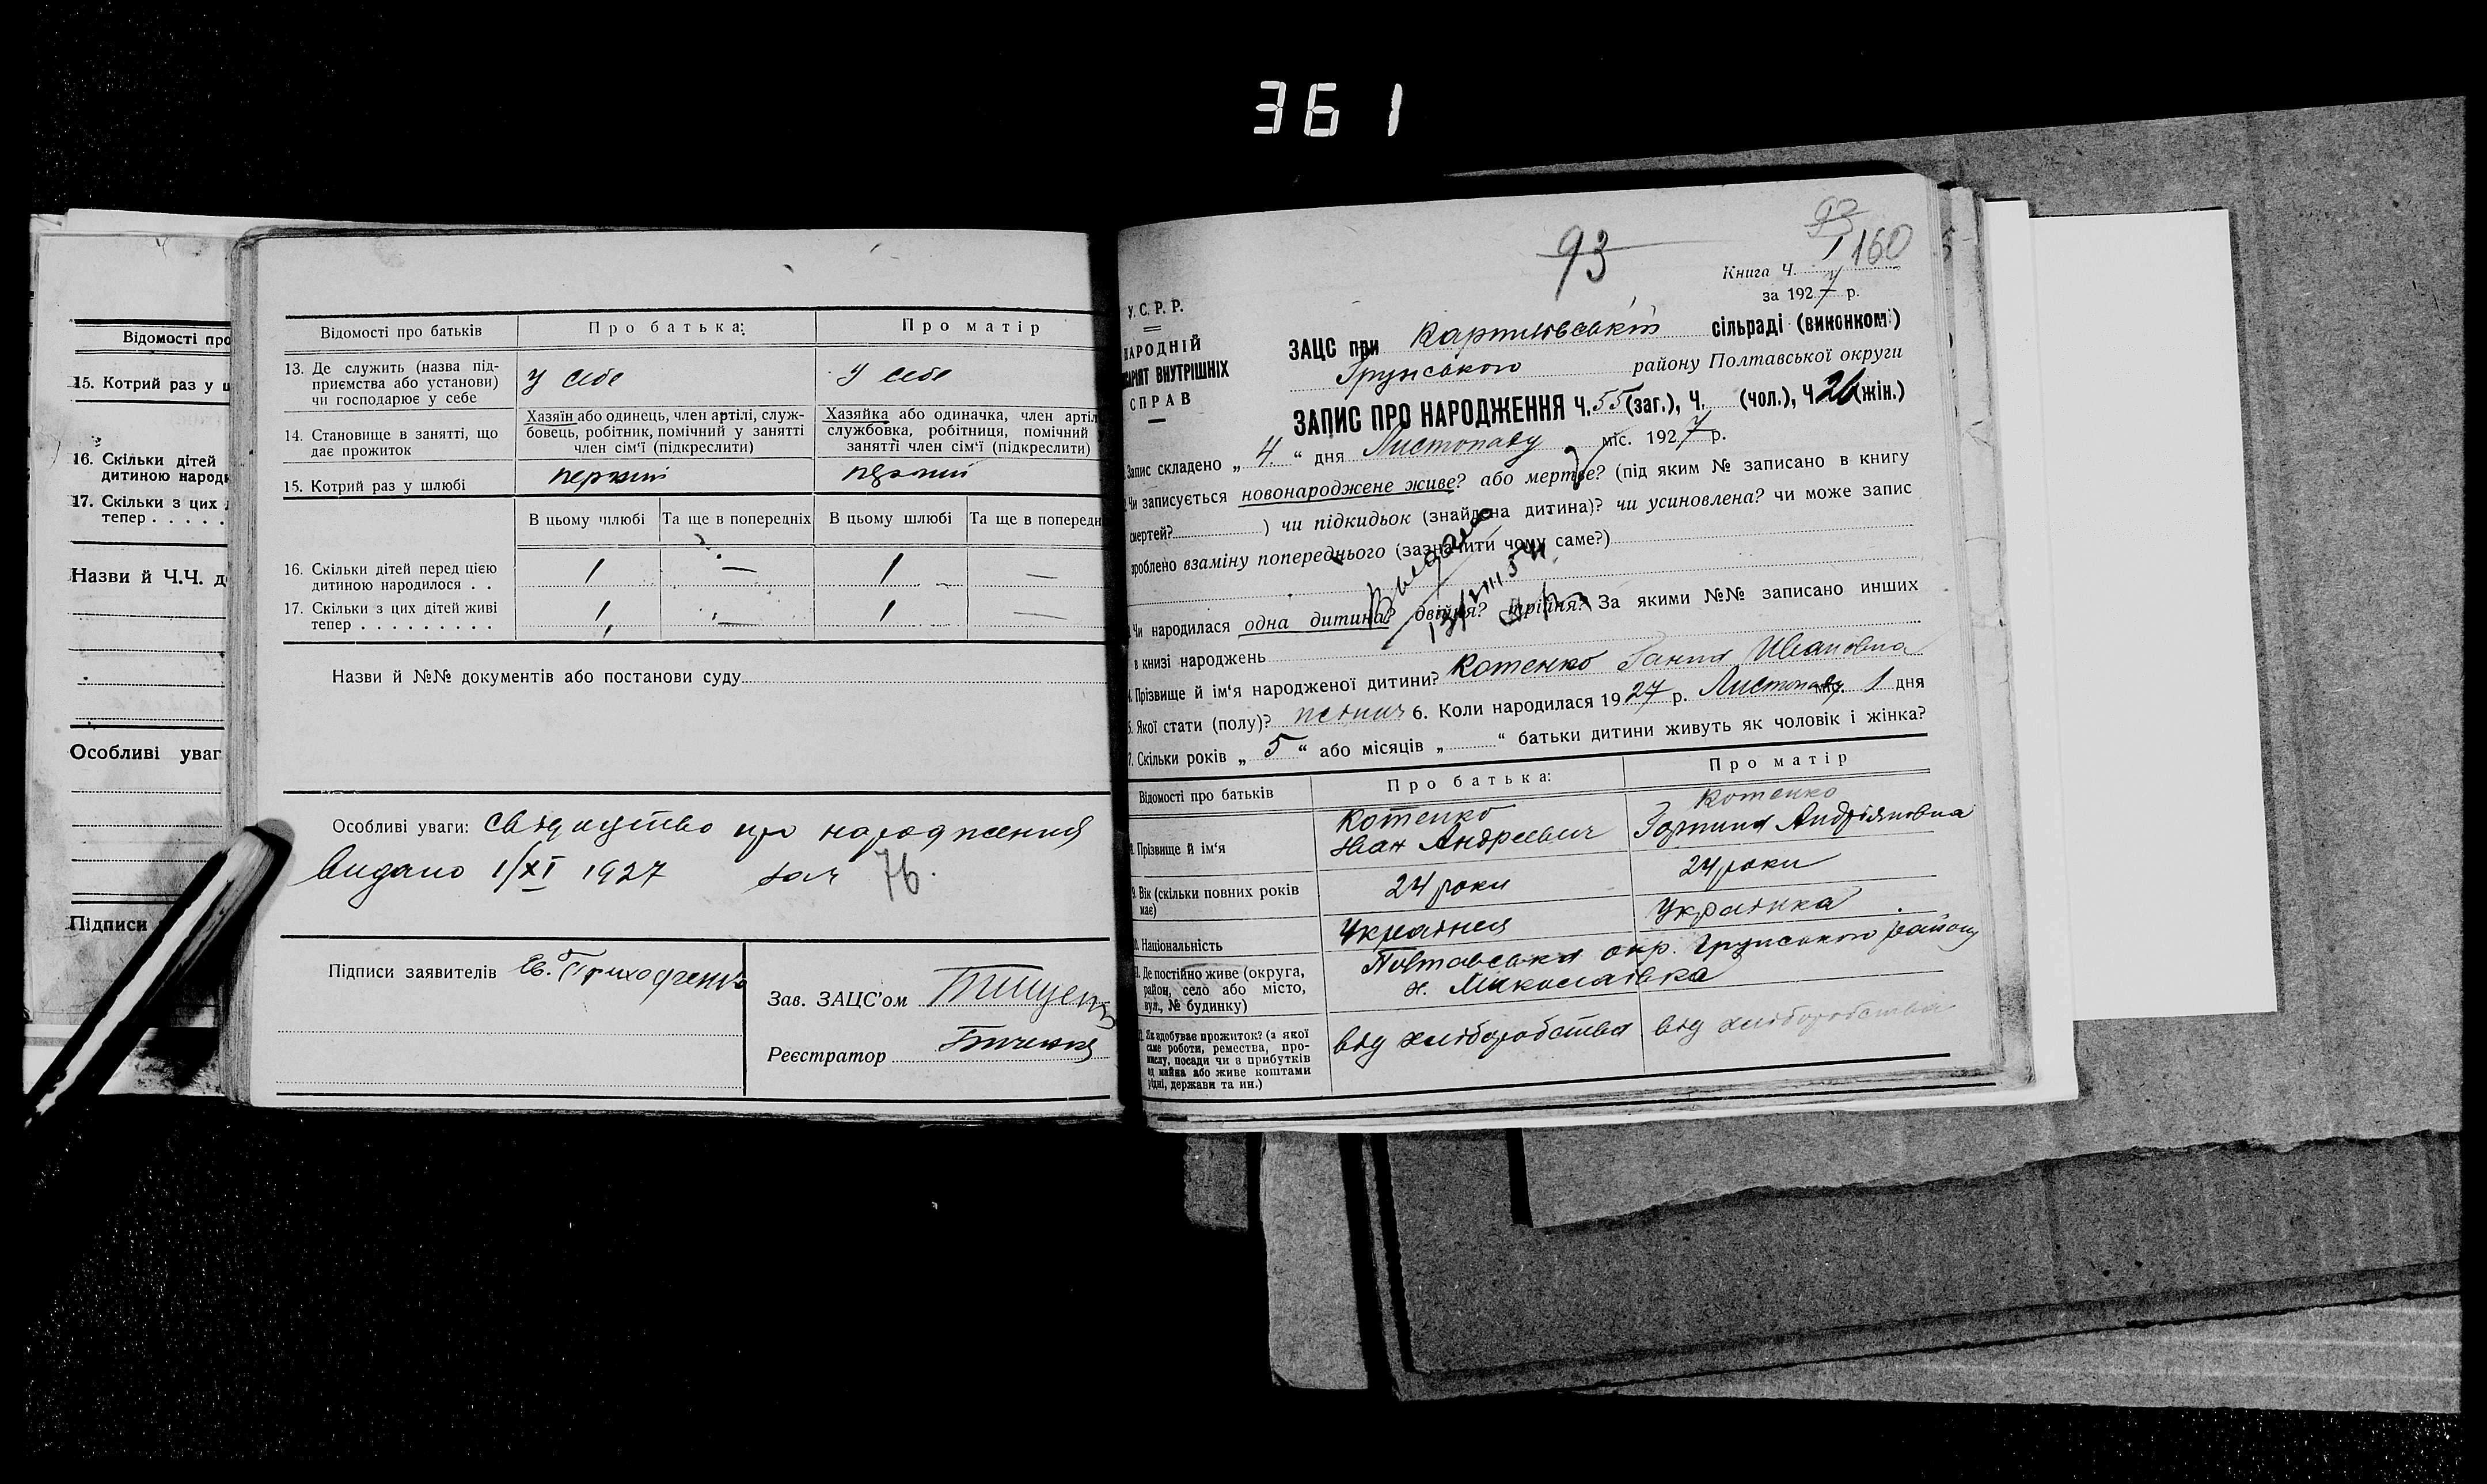 361
Відомості про
15. Котрий раз у ш
16. Скільки дітей
дитиною народи
17. Скільки з цих
тепер . . . . .
Назви й Ч.Ч. д
Особливі уваг
Підписи
Відомості про батьків
Про батька:
Про матір
13. Де служить (назва під-
приємства або установи)
чи господарює у себе
у себе
у себе
14. Становище в занятті, що
дає прожиток
Хазяїн або одинець, член артілі, служ-
бовець, робітник, помічний у занятті
член сім'ї (підкреслити)
Хазяйка або одиначка, член артіл
службовка, робітниця, помічний
занятті член сім'ї (підкреслити)
15. Котрий раз у шлюбі
перший
перший
В цьому шлюбі
Та ще в попередніх
В цьому шлюбі
Та ще в попередн
16. Скільки дітей перед цією
дитиною народилося . .
1 — 1 —
17. Скільки з цих дітей живі
тепер . . . . . . . . .
1 — 1 —
Назви й №№ документів або постанови суду
Особливі уваги: свідоцтво про народження
видано 1/XI 1927 за ч 76.
Підписи заявителів Єв. Приходченко
Зав. ЗАЦС'ом
Реєстратор
93
93
160
Книга Ч. 1
за 1927 р.
У.С.Р.Р.
НАРОДНІЙ
СПРАВ
ЗАЦС при сільраді (виконком:)
Грунського району Полтавської округи
ЗАПИС ПРО НАРОДЖЕННЯ Ч. 55 (заг.), Ч. (чол.), Ч. 26 (жін.)
Запис складено „ 4. “ дня Листопаду міс. 1927 р.
Чи записується новонароджене живе? або мертве? (під яким № записано в книгу
смертей? ) чи підкидьок (знайдена дитина)? чи усиновлена? чи може запис
зроблено взаміну попереднього (зазначити чому саме?)
Чи народилася одна дитина? двійня? трійня? За якими №№ записано инших
в книзі народжень
4. Прізвище й ім'я народженої дитини? Котенко Ганна Ивановна
5. Якої стати (полу)? 6. Коли народилася 1927 р. Листопаду міс. 1 дня
7. Скільки років „ 5 “ або місяців „ “ батьки дитини живуть як чоловік і жінка?
Відомості про батьків
Про батька:
Про матір
Прізвище й ім'я
Котенко
Иван Андреевич
Котенко
Андріяновна
9. Вік (скільки повних років
має)
24 роки
24 роки
Національність
Українец
Українка
Де постійно живе (округа,
район, село або місто,
вул., № будинку)
Полтавська окр. Грунського району
х. Миколаівка
Як здобуває прожиток? (з якої
саме роботи, ремества, про-
мислу, посади чи з прибутків
од майна або живе коштами
рідні, держави та ин.)
від хліборобства
від хліборобства